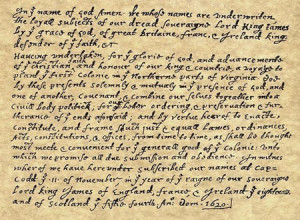 In yᵉ name of god Amen. We whose names are underwriten
the loyall subjects of our dread soveraigne Lord King James
by yᵉ grace of god, of great Britaine, franc, & Ireland king
defender of yᵉ faith, &c
Haveing undertaken, for yᵉ glorie of god, and advancemente
of yᵉ christian and honour of our king & countrie, a voyage to
plant yᵉ first colonie in yᵉ Northerne parts of Virginia. Doe
by these presents solemnly & mutualy in yᵉ presence of god, and
one of another, covenant, & combine our selves togeather into a
civill body politick, for our better ordering, & preservation & fur-
therance of yᵉ ends aforesaid; and by vertue hearof to enacte,
constitute, and frame such just & equall lawes, ordinances,
acts, constitutions, & offices, from time to time, as shall be thought
most meete & convenient for yᵉ generall good of yᵉ colonie: unto
which we promise all due submission and obedience. In witnes
wherof we have hereunder subscribed our names at cape
Codd yᵉ 11 of November, in yᵉ year of yᵉ raigne of our soveraigne
Lord king James of England, franc, & Ireland yᵉ eighteene
and of Scotland yᵉ fiftie fourth. Ano Dom. 1620